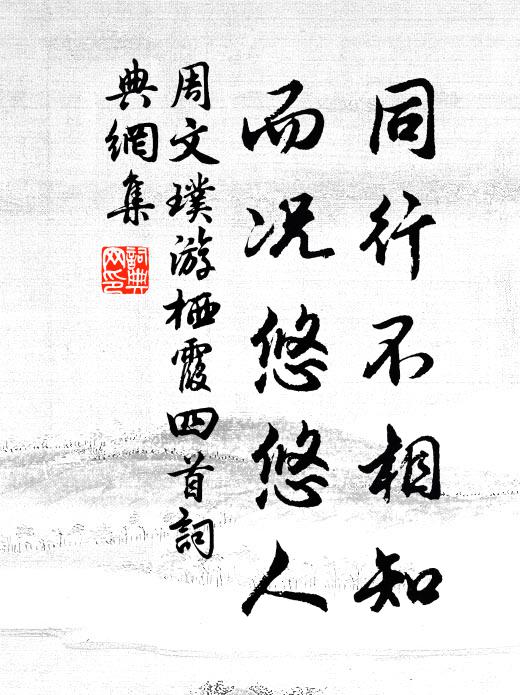 同行不相知
而况悠悠人
周文璞游栖霞四首詞
典網集
詞典
网印